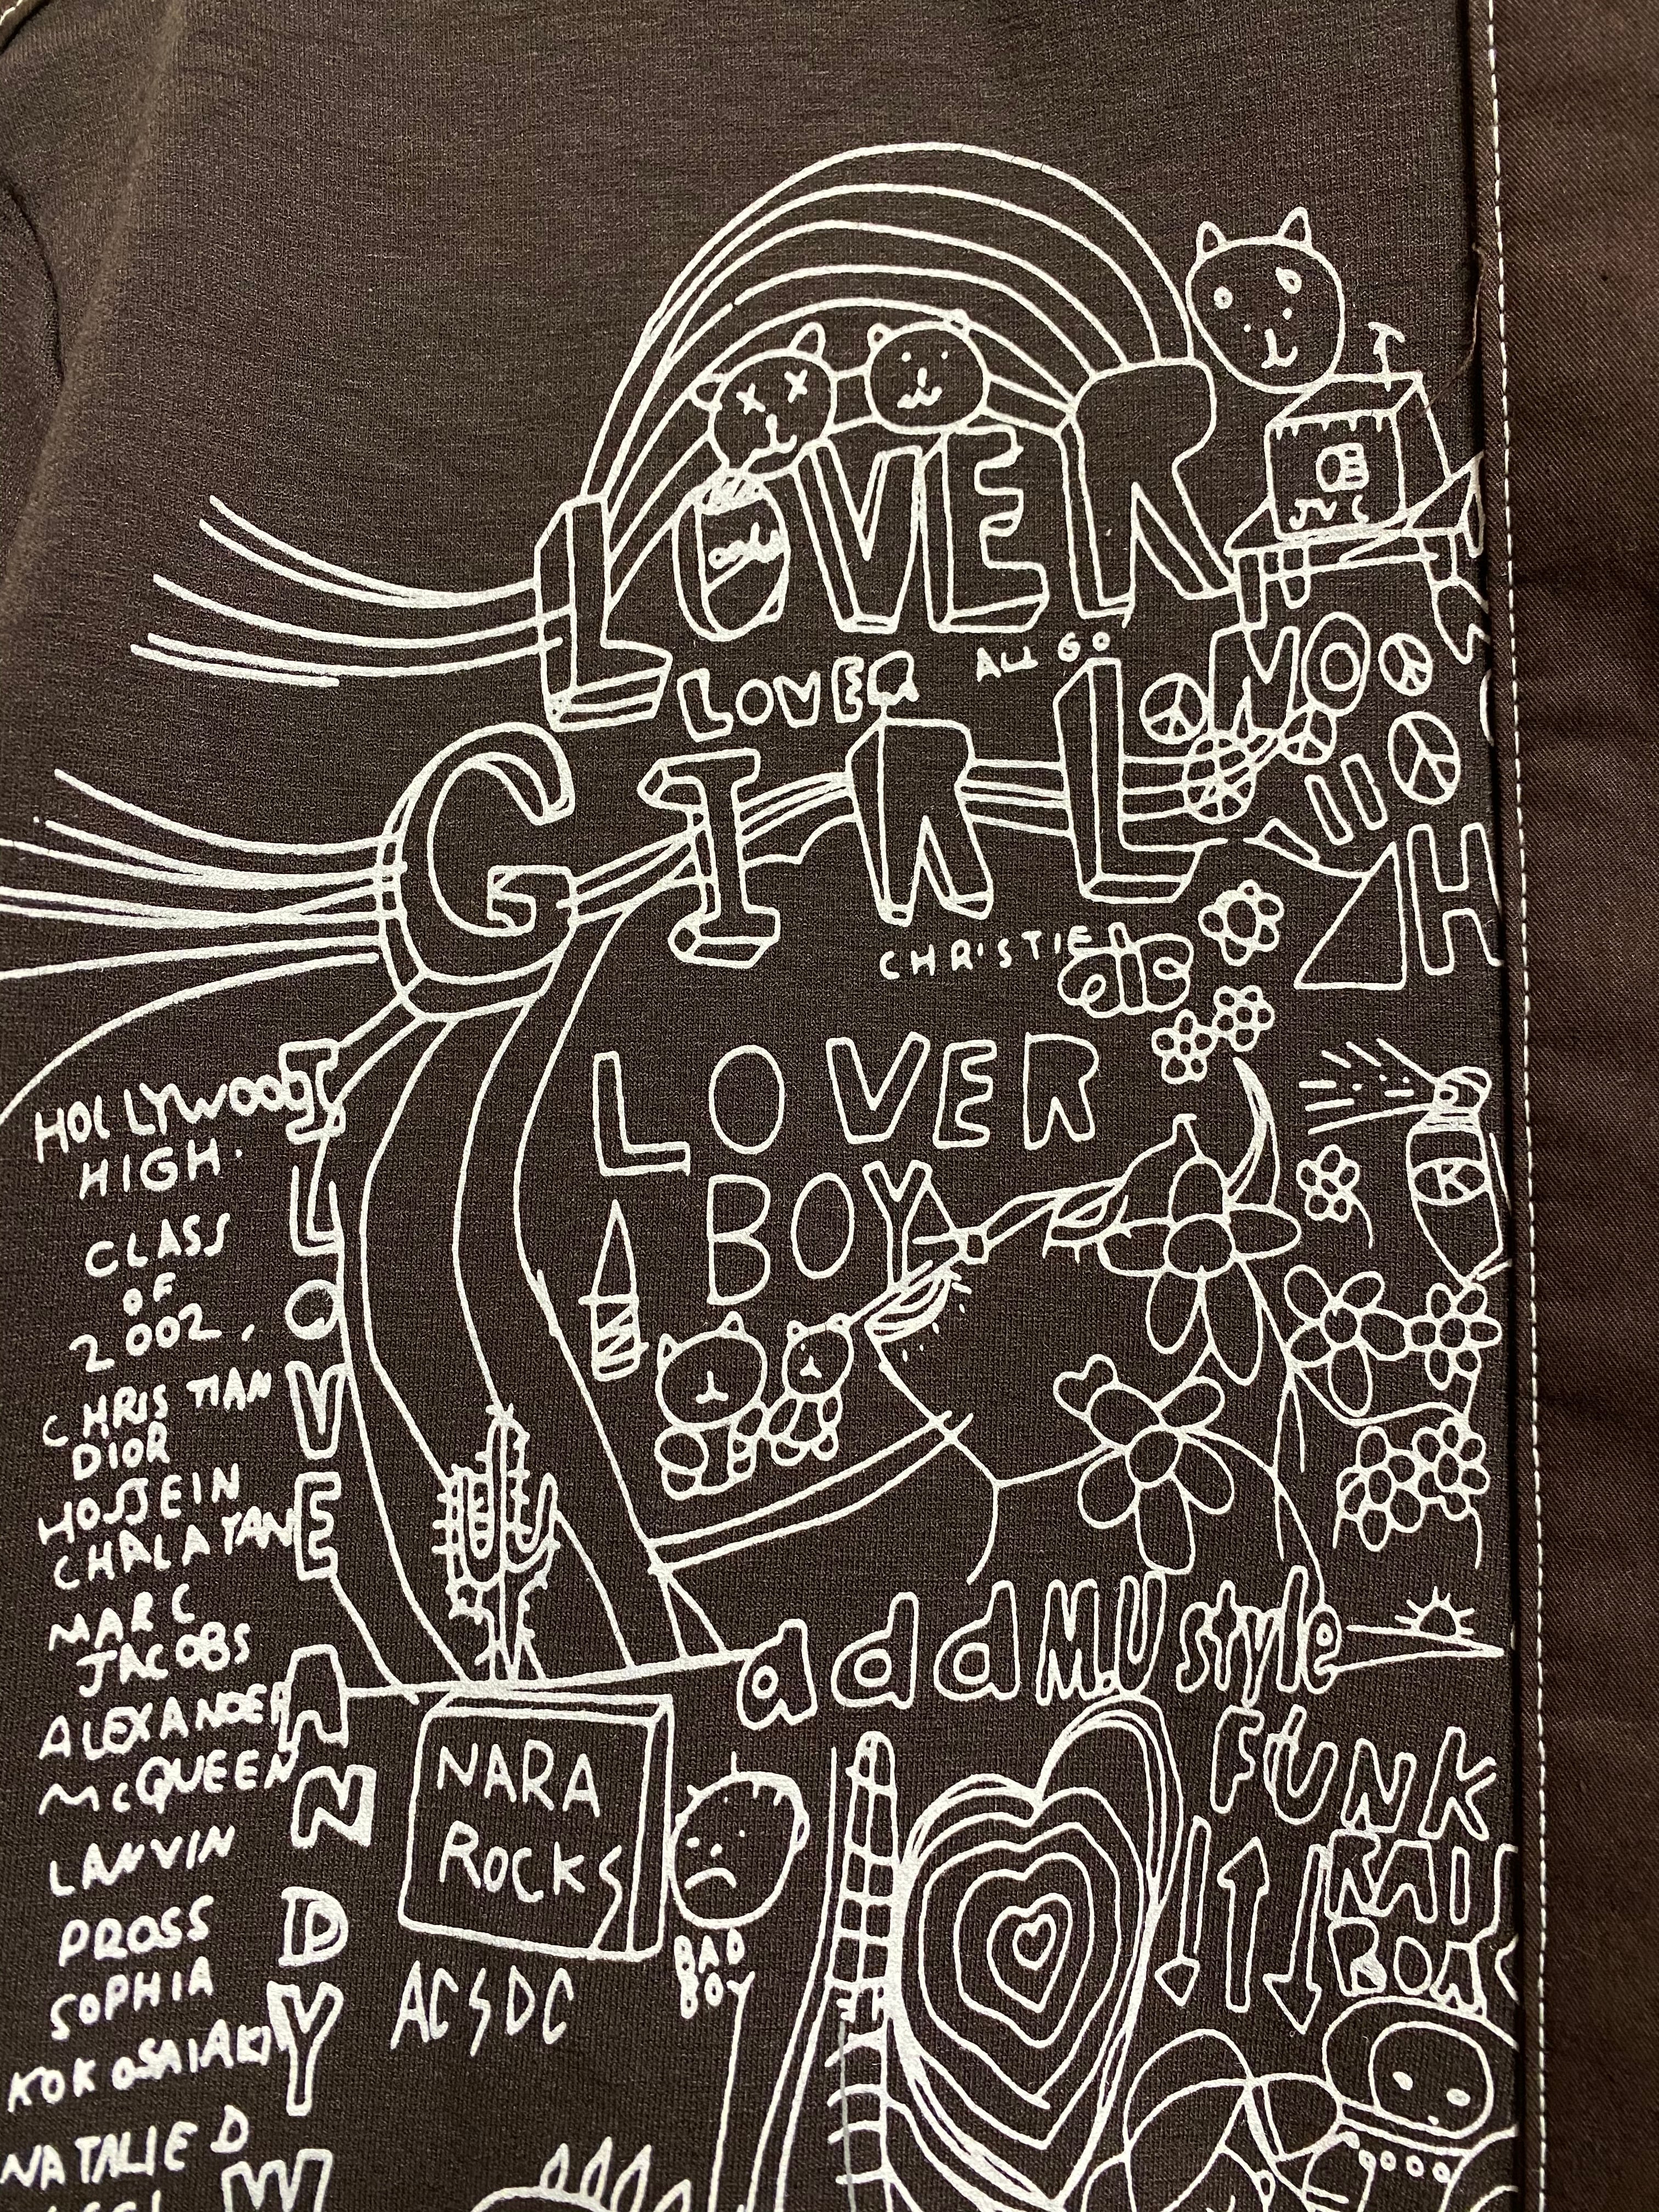 LOVER
JVC
LOVER
ALL GO
NO
GIRL
H
CHRISTIE
LOVER
BOY
HOLLYWOOD
HIGH.
CLASS
OF
2002,
CHRISTIAN
DIOR
HOSSEIN
CHALAYAN
MARC
JACOBS
ALEXANDER
McQUEEN
LANVIN
PROSS
SOPHIA
KOKOSALAKI
NATALIE D
I
LOVE
ANDY
W
addM.U style
NARA
ROCKS
BAD
BOY
AC⚡DC
FUNK